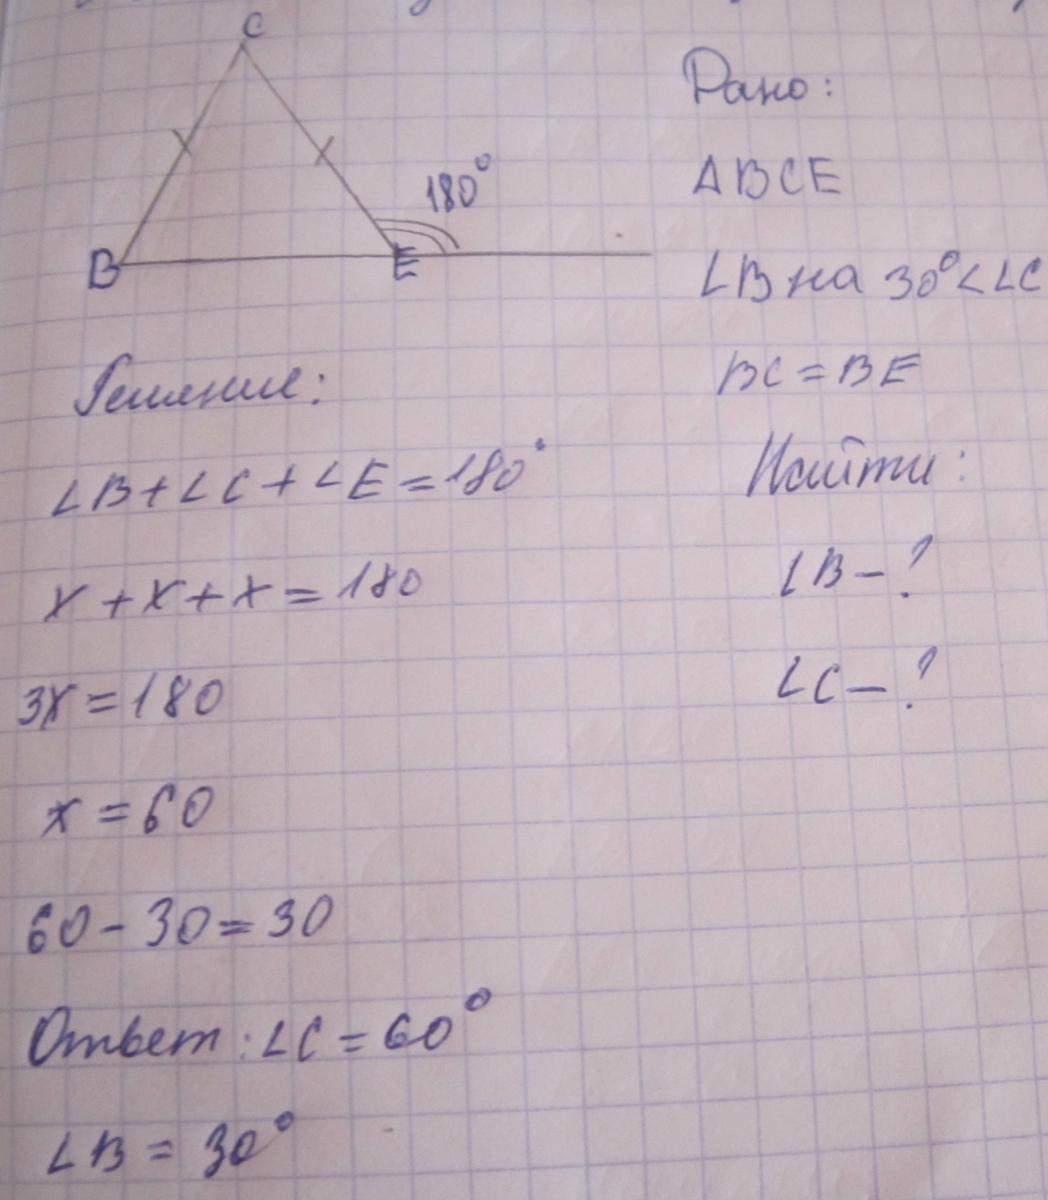 C
180°
B
E
Дано:
ΔBCE
∠B на 30° < ∠C
BC = BE
Найти:
∠B – ?
∠C – ?
Решение:
∠B + ∠C + ∠E = 180°
x + x + x = 180
3x = 180
x = 60
60 - 30 = 30
Ответ: ∠C = 60°
∠B = 30°